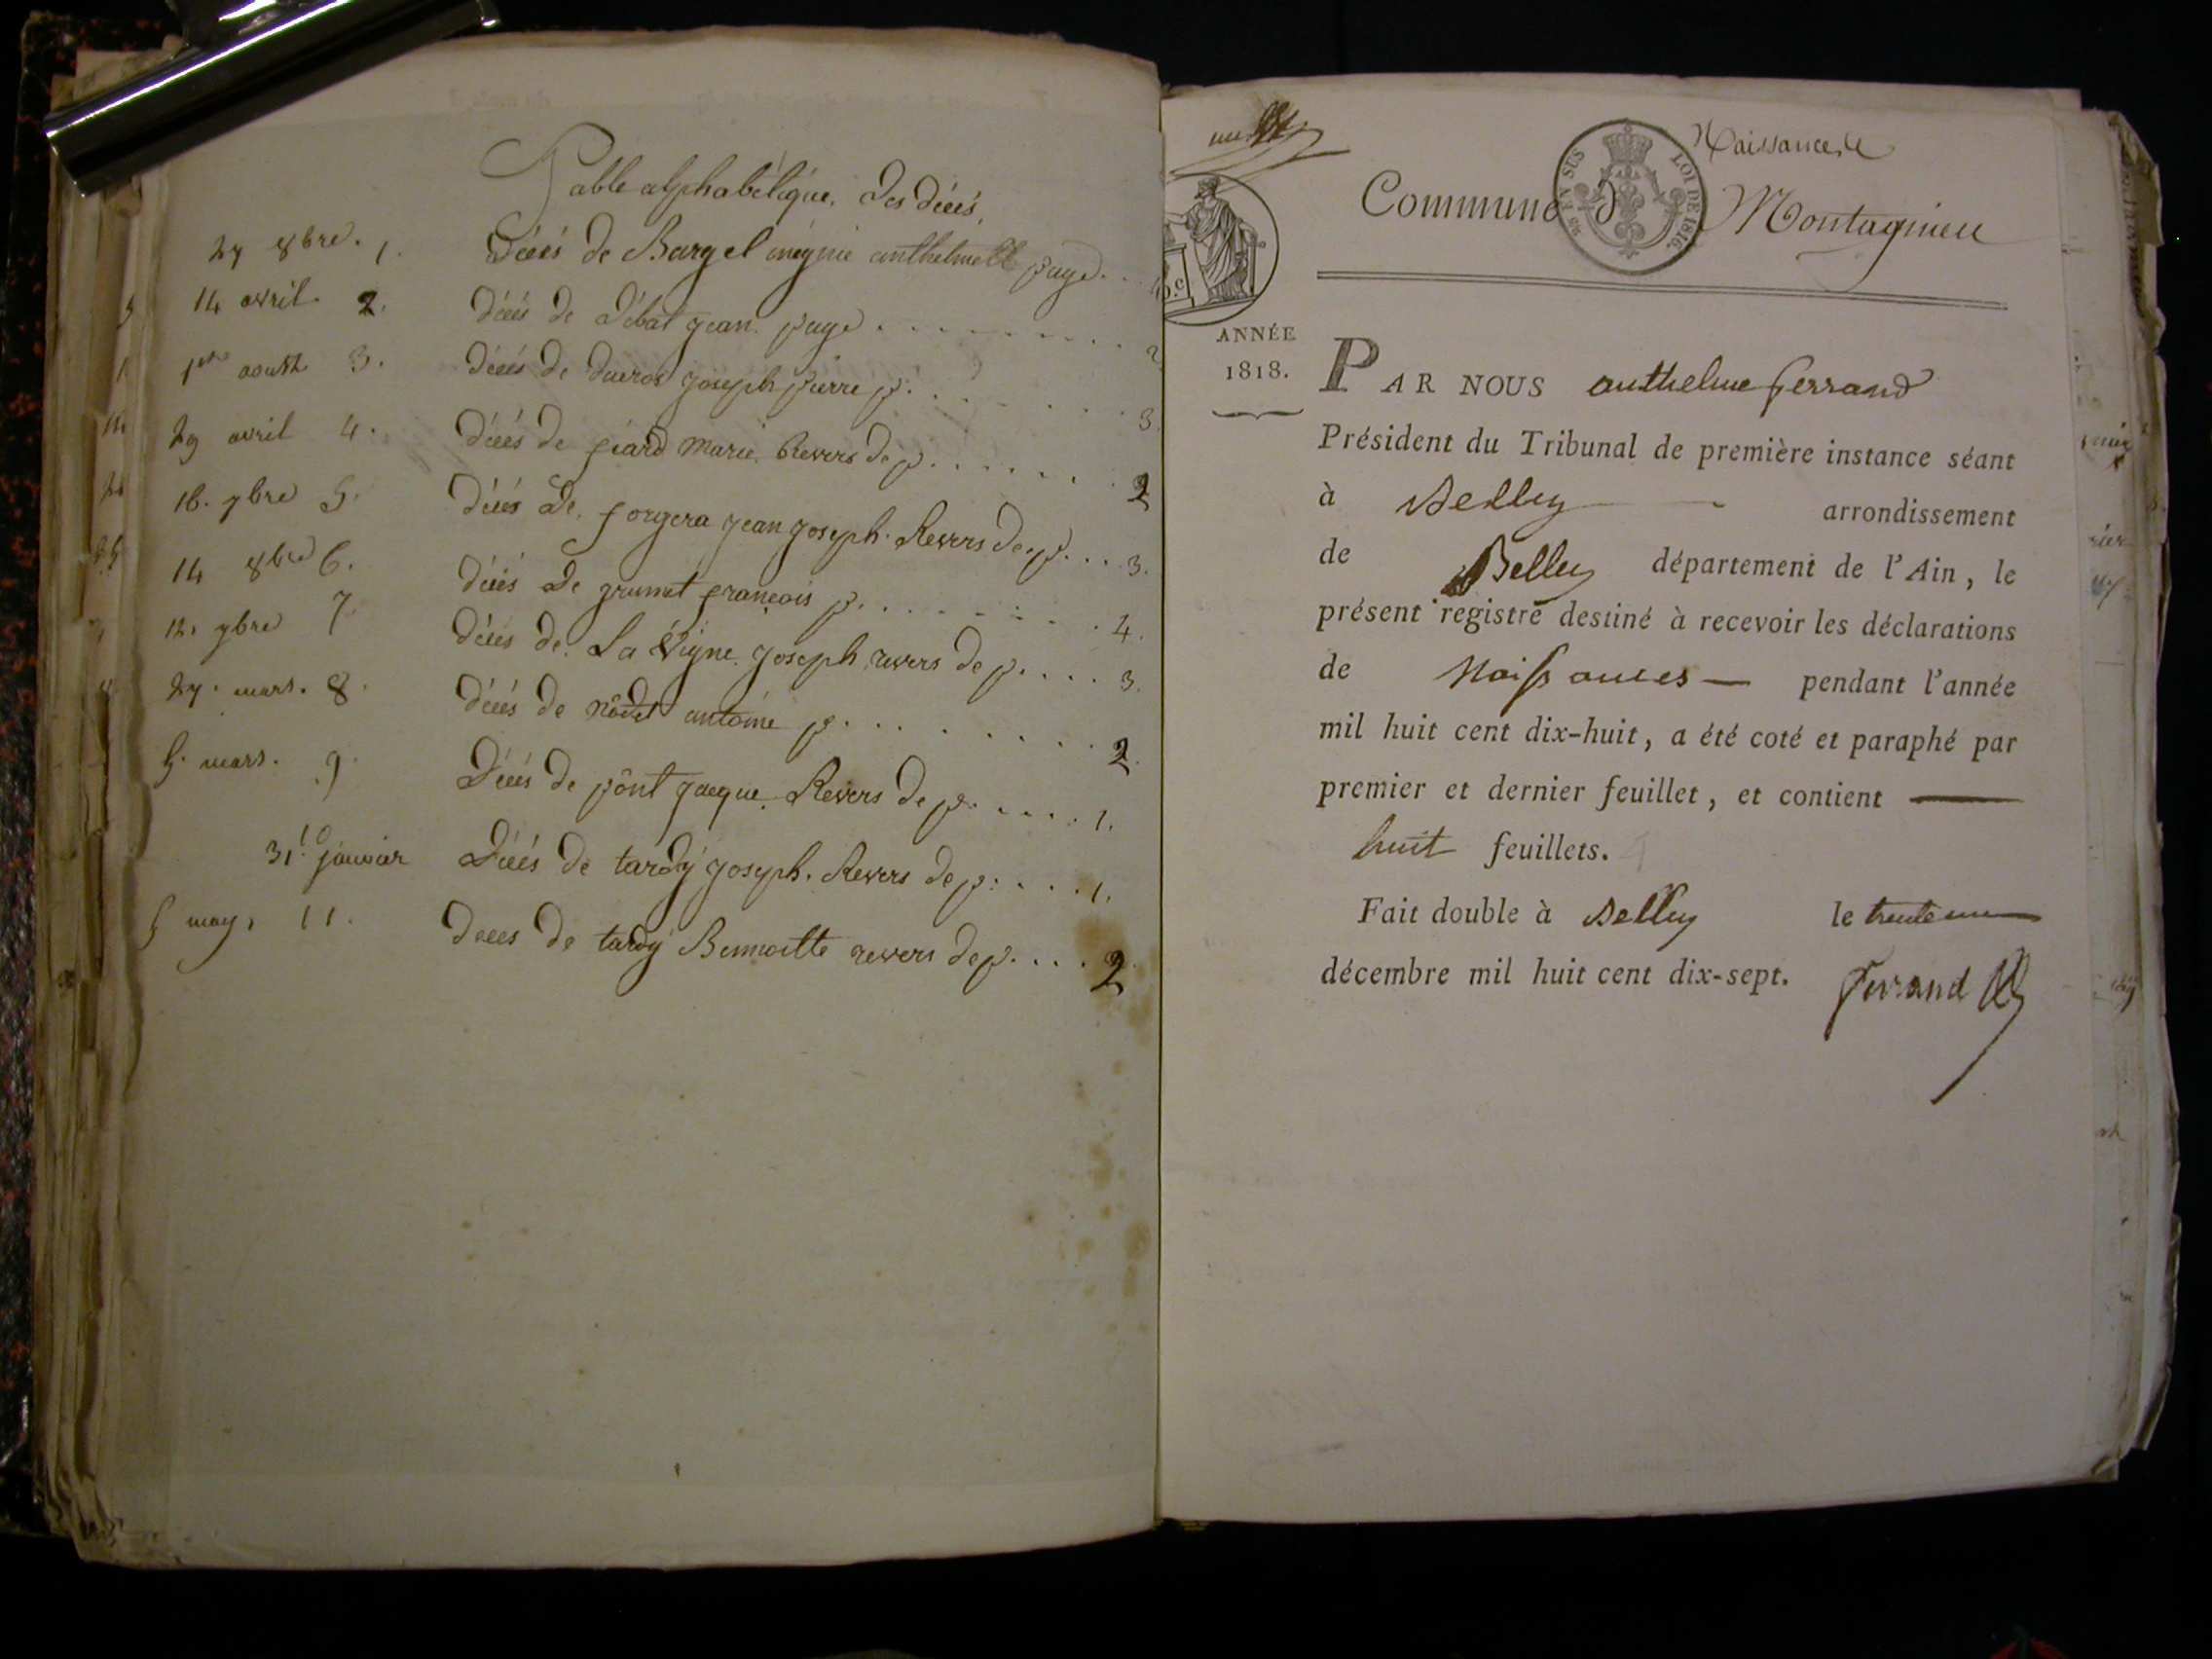 Table alphabétique, Des décés,
27 8bre. 1. Décés de Bargel page . . .
14 avril. 2. décés de Débat jean. page . . . . . . . . 2
1er aoust 3. décés de ducros joseph pierre p. . . . . . . 3.
29 avril 4. décés de piard Marie. Revers de p. . . . . . . 2
16. 9bre 5. décés De. fougera jean joseph. Revers de p. . . . 3.
14 8bre 6. décés De grumet françois p. . . . . . . . 4.
12. 9bre 7. décés de. La Vigne. joseph. revers de p. . . . . 3.
27. mars. 8. décés de nôdet antoine p. . . . . . . . 2.
5. mars. 9. Décés de pônt jacque. Revers de p. . . . . 1.
31. 10. janvier Décés de tardy joseph. Revers de p. . . . . 1.
5 may, 11. Decés de tardy Bennoitte revers de p. . . . 2
un
Naissances
Commune d Montagnieu
EN SUS
LOI DE 1816.
ANNÉE
1818.
PAR NOUS anthelme ferrand
Président du Tribunal de première instance séant
à Belley arrondissement
de Belley département de l'Ain, le
présent registre destiné à recevoir les déclarations
de Naissances — pendant l'année
mil huit cent dix-huit, a été coté et paraphé par
premier et dernier feuillet, et contient —
huit feuillets.
Fait double à Belley le trente un
décembre mil huit cent dix-sept. ferrand